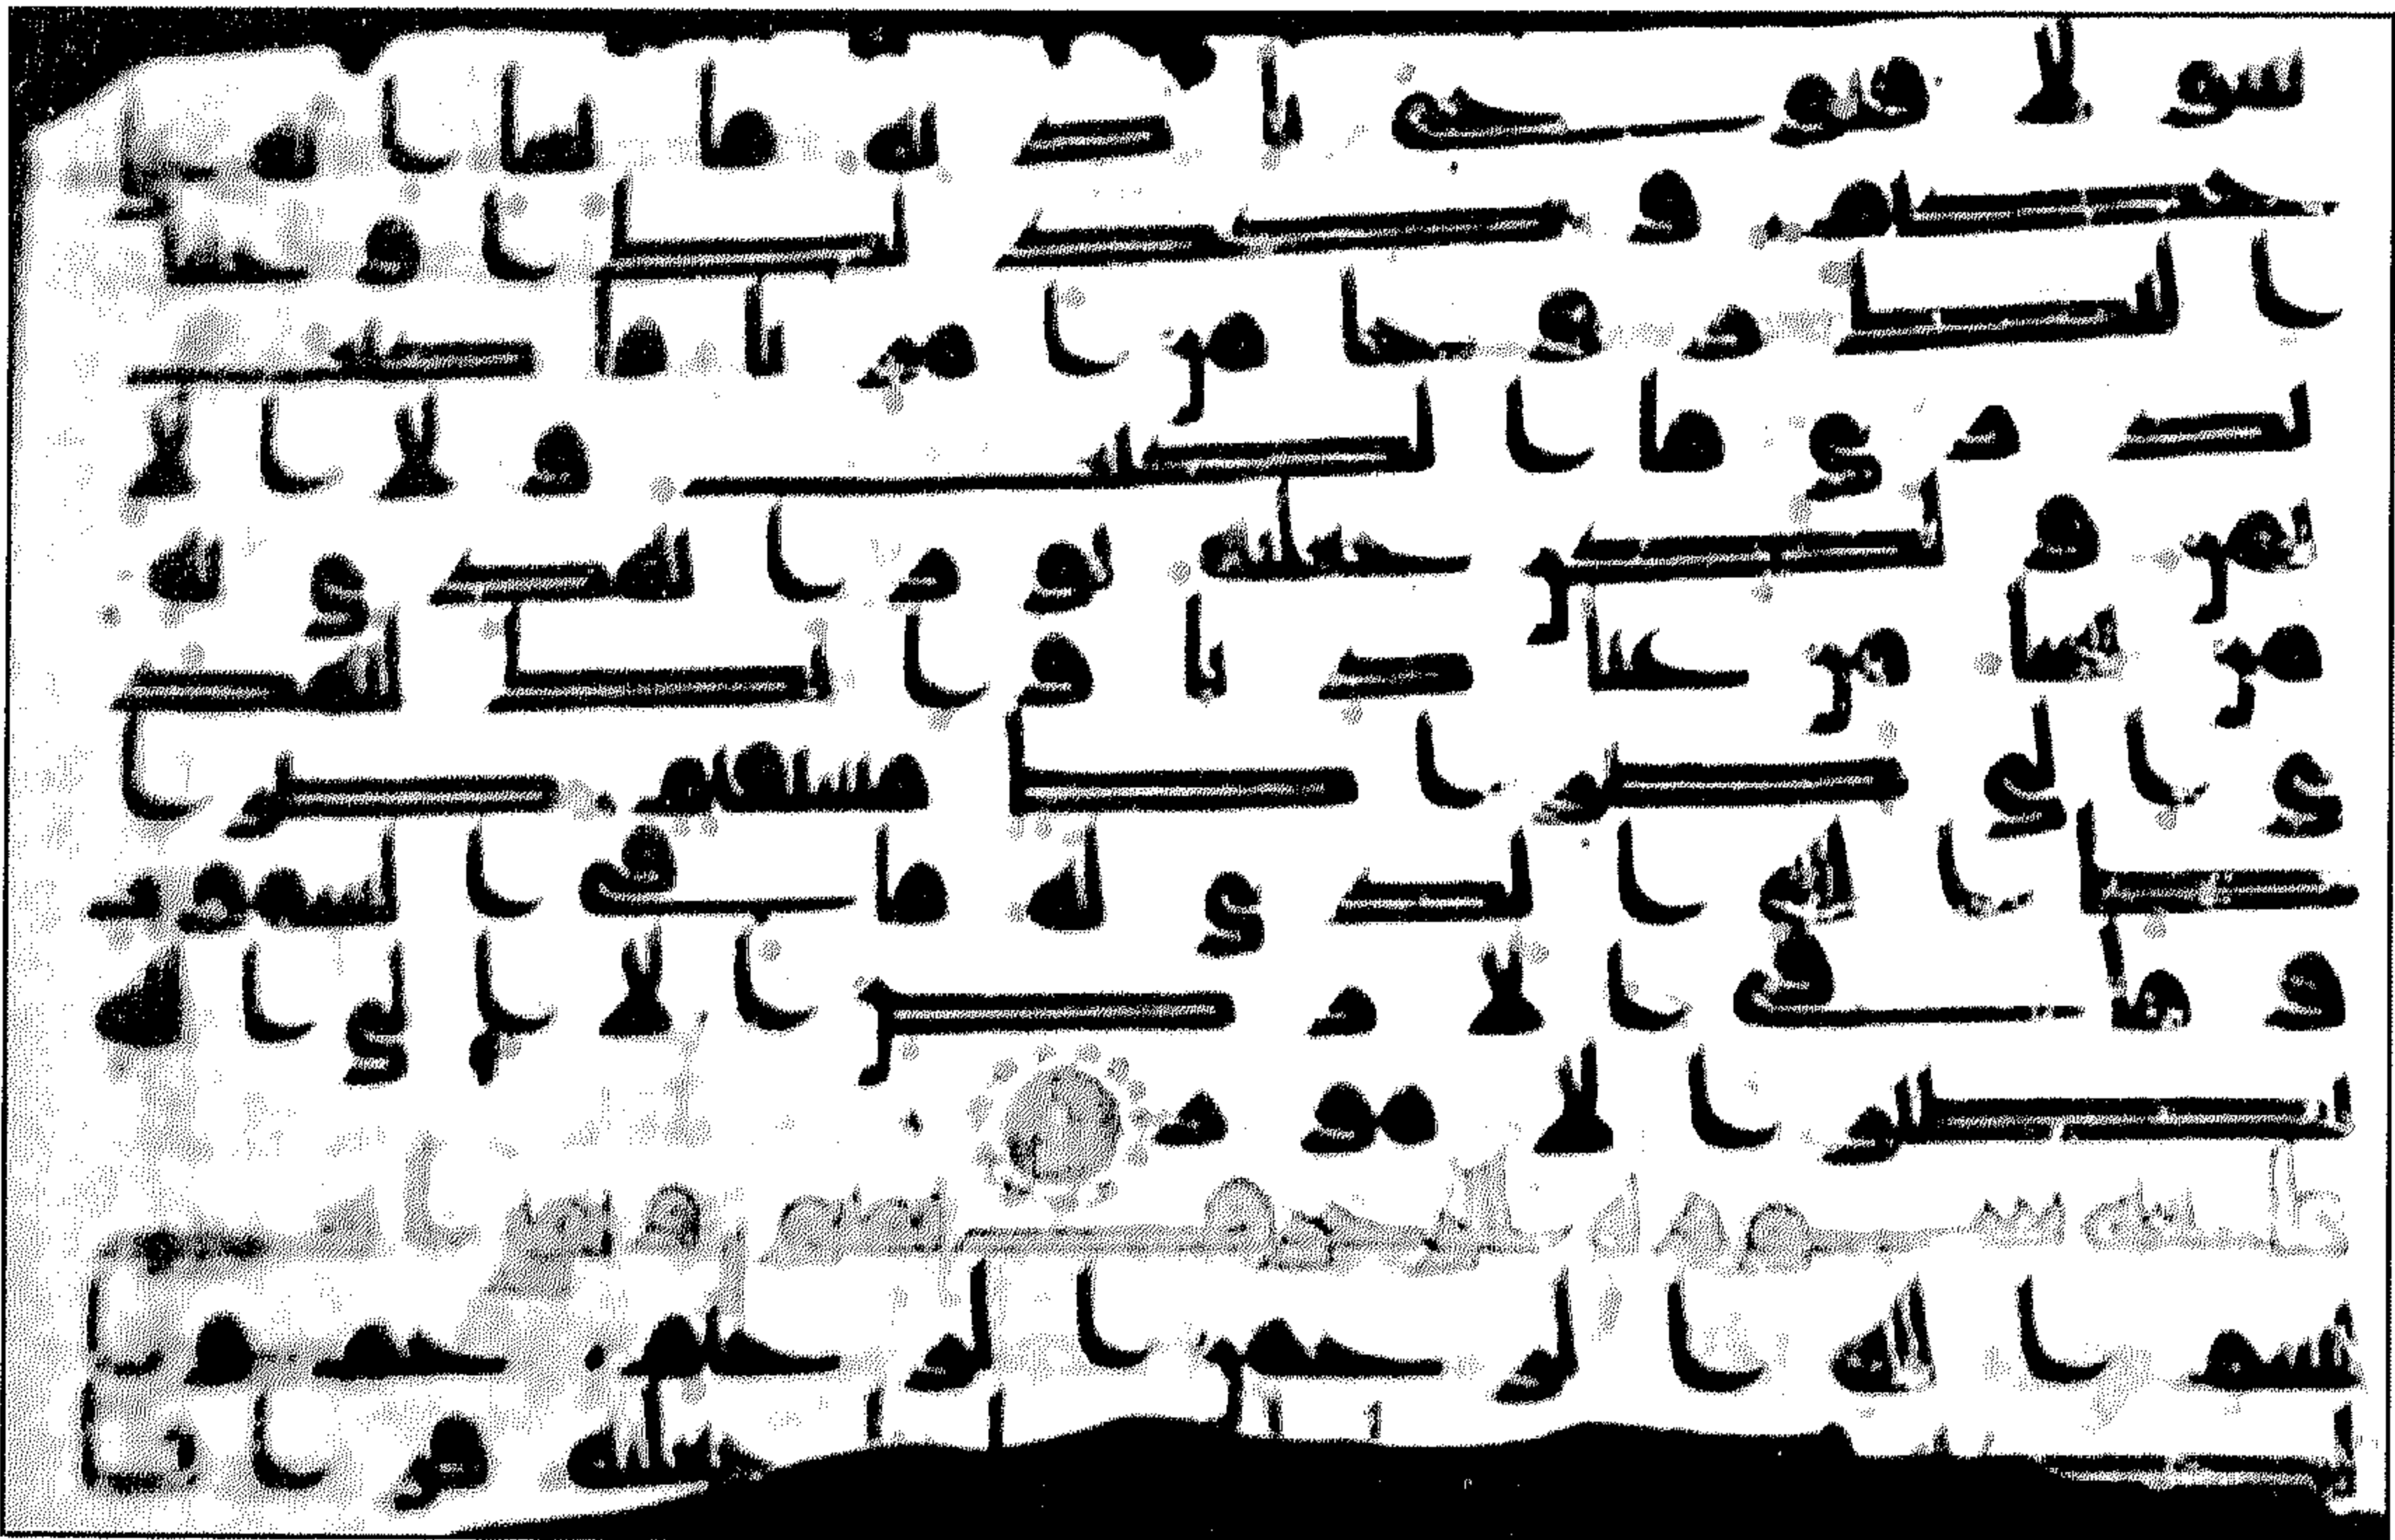 سولا فيوحى باذنه ما يشا انه على
حكيم وكذلك اوحينا
ا اليك روحا من امرنا ما كنت
تدرى ما الكتب ولا الا
يمن ولكن جعلنه نورا نهدى به
من نشا من عبادنا وانك لتهد
ى الى صراط مستقيم صرا
ط الله الذى له ما فى السموت
وما فى الارض الا الى الله
تصير الامور
بسم الله الرحمن الرحيم حم وا
جعلنه قرانا